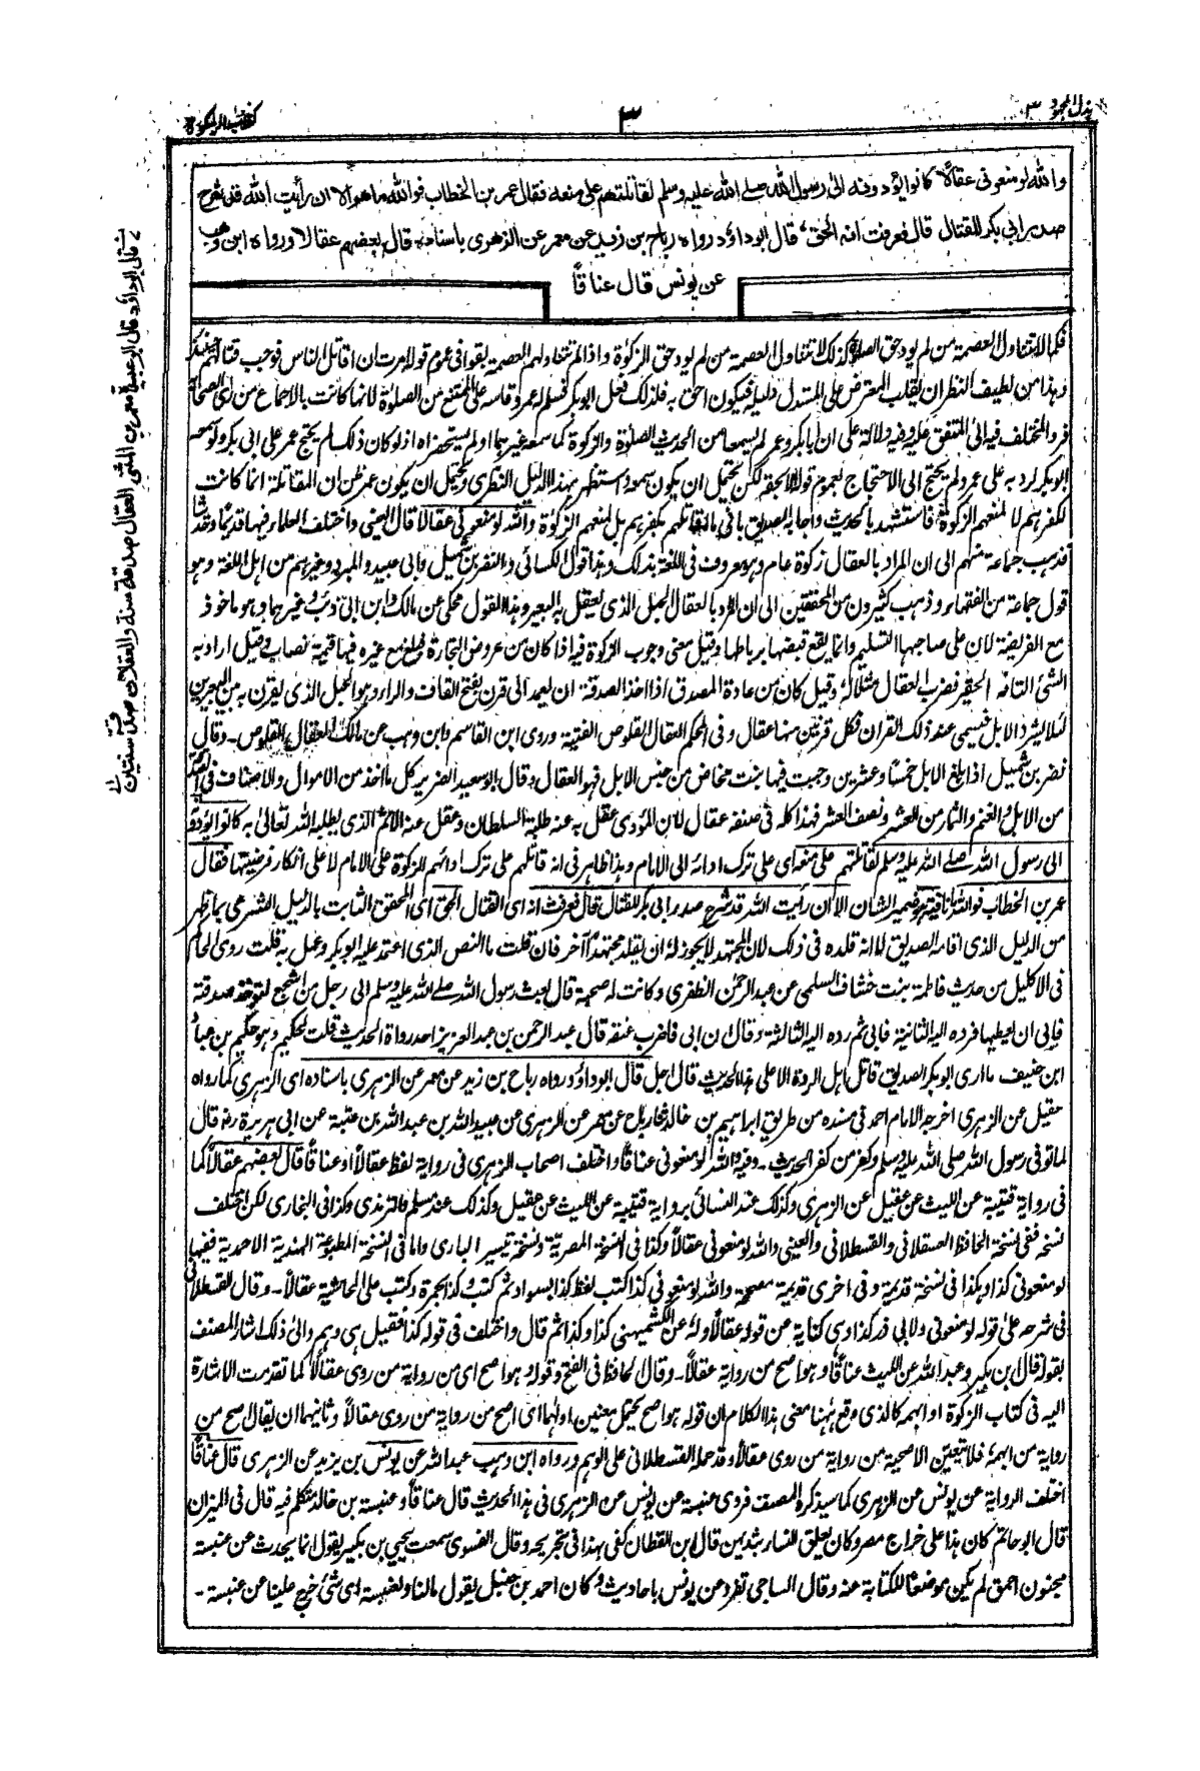 بذل المجهود ٣
٣
كتاب الزكوة
والله لو منعونى عقالا كانوا يؤدونه الى رسول الله صلے الله عليه وسلم لقاتلتهم على منعه فقال عمر بن الخطاب فوالله ما هو الا ان رأيت الله قد شرح
صدر ابى بكر للقتال قال فعرفت انه الحق، قال ابوداؤد رواه رباح بن زيد عن معمر عن الزهرى باسناده قال بعضهم عقالا ورواه ابن وهب
عن يونس قال عناقاً
فكما لا تتناول العصمة من لم يود حق الصلوة كذلك لا تتناول العصمة من لم يود حق الزكوة واذا لم تتناولهم العصمة بقوا فى عموم قوله امرت ان اقاتل الناس فوجب قتالهم
وهذا من لطيف النظر ان يقلب المعترض على المستدل دليله فيكون احق به فلذلك فعل ابوبكر فسلم له عمر وقاسه على الممتنع من الصلوة لانها كانت بالاجماع من رأى الصحابة
فرد المختلف فيه الى المتفق عليه وفيه دلالة على ان ابا بكر وعمر لم يسمعا من الحديث الصلوة والزكوة كما سمعه غيرهما او لم يستحضراه اذ لو كان ذلك لم يحتج عمر على ابى بكر ولو سمعه
ابوبكر لرد به على عمر ولم يحتج الى الاحتجاج بعموم قوله الا بحقه لكن يحتمل ان يكون سمعه واستظهر بهذا الدليل النظرى ويحتمل ان يكون عمر ظن ان المقاتلة انما كانت
لكفرهم لا لمنعهم الزكوة فاستشهد بالحديث واجابه الصديق بانى ما اقاتلهم بكفرهم بل لمنعهم الزكوة والله لو منعونى عقالا قال العينى واختلف العلماء فيها قديما وحديثا
فذهب جماعة منهم الى ان المراد بالعقال زكوة عام وهو معروف فى اللغة بذلك وهذا قول الكسائى والنضر بن شميل وابى عبيد والمبرد وغيرهم من اهل اللغة وهو
قول جماعة من الفقهاء وذهب كثيرون من المحققين الى ان المراد بالعقال الحبل الذى يعقل به البعير وهذا القول محكى عن مالك وابن ابى ذئب وغيرهما وهو ماخوذ
مع الفريضة لان على صاحبها التسليم وانما يقع قبضها برباطها وقيل معنى وجوب الزكوة فيه اذا كان من عروض التجارة فبلغ مع غيره فيها قيمة نصاب وقيل اراد به
الشئ التافه الحقير فضرب العقال مثلا له وقيل كان من عادة المصدق اذا اخذ الصدقة ان يعمد الى قرن بفتح القاف والراء وهو الحبل الذى يقرن به بين البعيرين
لئلا يشرد الابل فيسمى عند ذلك القران فكل قرنين منها عقال وفى المحكم العقال القلوص الفتية وروى ابن القاسم وابن وهب عن مالك العقال القلوص - وقال
نضر بن شميل اذا بلغ الابل خمسا وعشرين وجبت فيها بنت مخاض من جنس الابل فهو العقال وقال ابو سعيد الضرير كل ما اخذ من الاموال والاصناف فى الصدقة
من الابل والغنم والثمار من العشر ونصف العشر فهذا كله فى صنفه عقال لان المؤدى عقل به عنه طلبة السلطان وعقل عنه الاثم الذى يطلبه الله تعالى به كانوا يؤدونه
الى رسول الله صلے الله عليه وسلم لقاتلتهم على منعه اى على ترك ادائه الى الامام وهذا ظاهر فى انه قاتلهم على ترك ادائهم الزكوة على الامام لا على انكار فرضيتها فقال
عمر بن الخطاب فوالله ما نافية هو ضمير الشان الا ان رأيت الله قد شرح صدر ابى بكر للقتال قال فعرفت انه اى القتال الحق اى المحقق الثابت بالدليل الشرعى بما ظهر
من الدليل الذى اقامه الصديق لا انه قلده فى ذلك لان المجتهد لا يجوز له ان يقلد مجتهدا آخر فان قلت ما النص الذى اعتمد عليه ابوبكر وعمل به قلت روى الحاكم
فى الاكليل من حديث فاطمة بنت خشاف السلمى عن عبد الرحمن الظفرى وكانت له صحبة قال بعث رسول الله صلے الله عليه وسلم الى رجل من اشجع لتؤخذ صدقته
فابى ان يعطيها فرده اليه الثانية فابى ثم رده اليه الثالثة وقال ان ابى فاضرب عنقه قال عبد الرحمن بن عبد العزيز احد رواة الحديث قلت لحكيم وهو حكيم بن عباد
ابن حنيف ما ارى ابوبكر الصديق قاتل اهل الردة الا على هذا الحديث قال اجل قال ابوداؤد ورواه رباح بن زيد عن معمر عن الزهرى باسناده اى الزهرى كما رواه
عقيل عن الزهرى اخرجه الامام احمد فى مسنده من طريق ابراهيم بن خالد ثنا رباح عن معمر عن الزهرى عن عبيد الله بن عبد الله بن عتبة عن ابى هريرة رض قال
لما توفى رسول الله صلى الله عليه وسلم وكفر من كفر الحديث - وفيه والله لو منعونى عناقا واختلف اصحاب الزهرى فى رواية لفظ عقالا او عناقا قال بعضهم عقالا كما
فى رواية قتيبة عن الليث عن عقيل عن الزهرى وكذلك عند النسائى برواية قتيبة عن الليث عن عقيل وكذلك عند مسلم والترمذى وكذا فى البخارى لكن اختلف
نسخه ففى نسخة الحافظ العسقلانى والقسطلانى والعينى والله لو منعونى عقالا وكذا فى النسخة المصرية ونسخة تيسير البارى واما فى النسخة المطبوعة الهندية الاحمدية ففيها
لو منعونى كذا وهكذا فى نسخة قديمة وفى اخرى قديمة مصححة والله لو منعونى كذا كتب لفظ كذا بسواد ثم كتب وكذا بحمرة وكتب على الحاشية عقالا - وقال القسطلانى
فى شرحه على قوله لو منعونى ولابى ذر كذا وى كناية عن قوله عقالا وله عن الكشميهنى كذا وكذا ثم قال واختلف فى قوله كذا فقيل هى وهم والى ذلك اشار المصنف
بقوله قال ابن بكير وعبد الله عن الليث عناقا وهو اصح من رواية عقالا - وقال الحافظ فى الفتح وقوله وهو اصح اى من رواية من روى عقالا كما تقدمت الاشارة
اليه فى كتاب الزكوة او ابهمه كالذى وقع ههنا معنى هذا الكلام ان قوله هو اصح يحتمل معنين اولهما اى اصح من رواية من روى عقالا وثانيهما ان يقال اصح من
رواية من ابهمه فلا يتعين الاصحية من رواية من روى عقالا وقد حمله القسطلانى على الوهم ورواه ابن وهب عبد الله عن يونس بن يزيد عن الزهرى قال عناقا
اختلف الرواية عن يونس عن الزهرى كما سيذكره المصنف فروى عنبسة عن يونس عن الزهرى فى هذا الحديث قال عناقا وعنبسة بن خالد متكلم فيه قال فى الميزان
قال ابو حاتم كان هذا على خراج مصر وكان يعلق النساء بثديهن قال ابن القطان كفى بهذا فى تجريحه وقال الفسوى سمعت يحيى بن بكير يقول انما يحدث عن عنبسة
مجنون احمق لم يكن موضعا للكتابة عنه وقال الساجى تفرد عن يونس باحاديث وكان احمد بن حنبل يقول مالنا ولعنبسة اى شئ خرج علينا عن عنبسة -
قال ابوداؤد قال ابو عبيدة معمر بن المثنى العقال صدقة سنة والعقالان صدقة سنتين